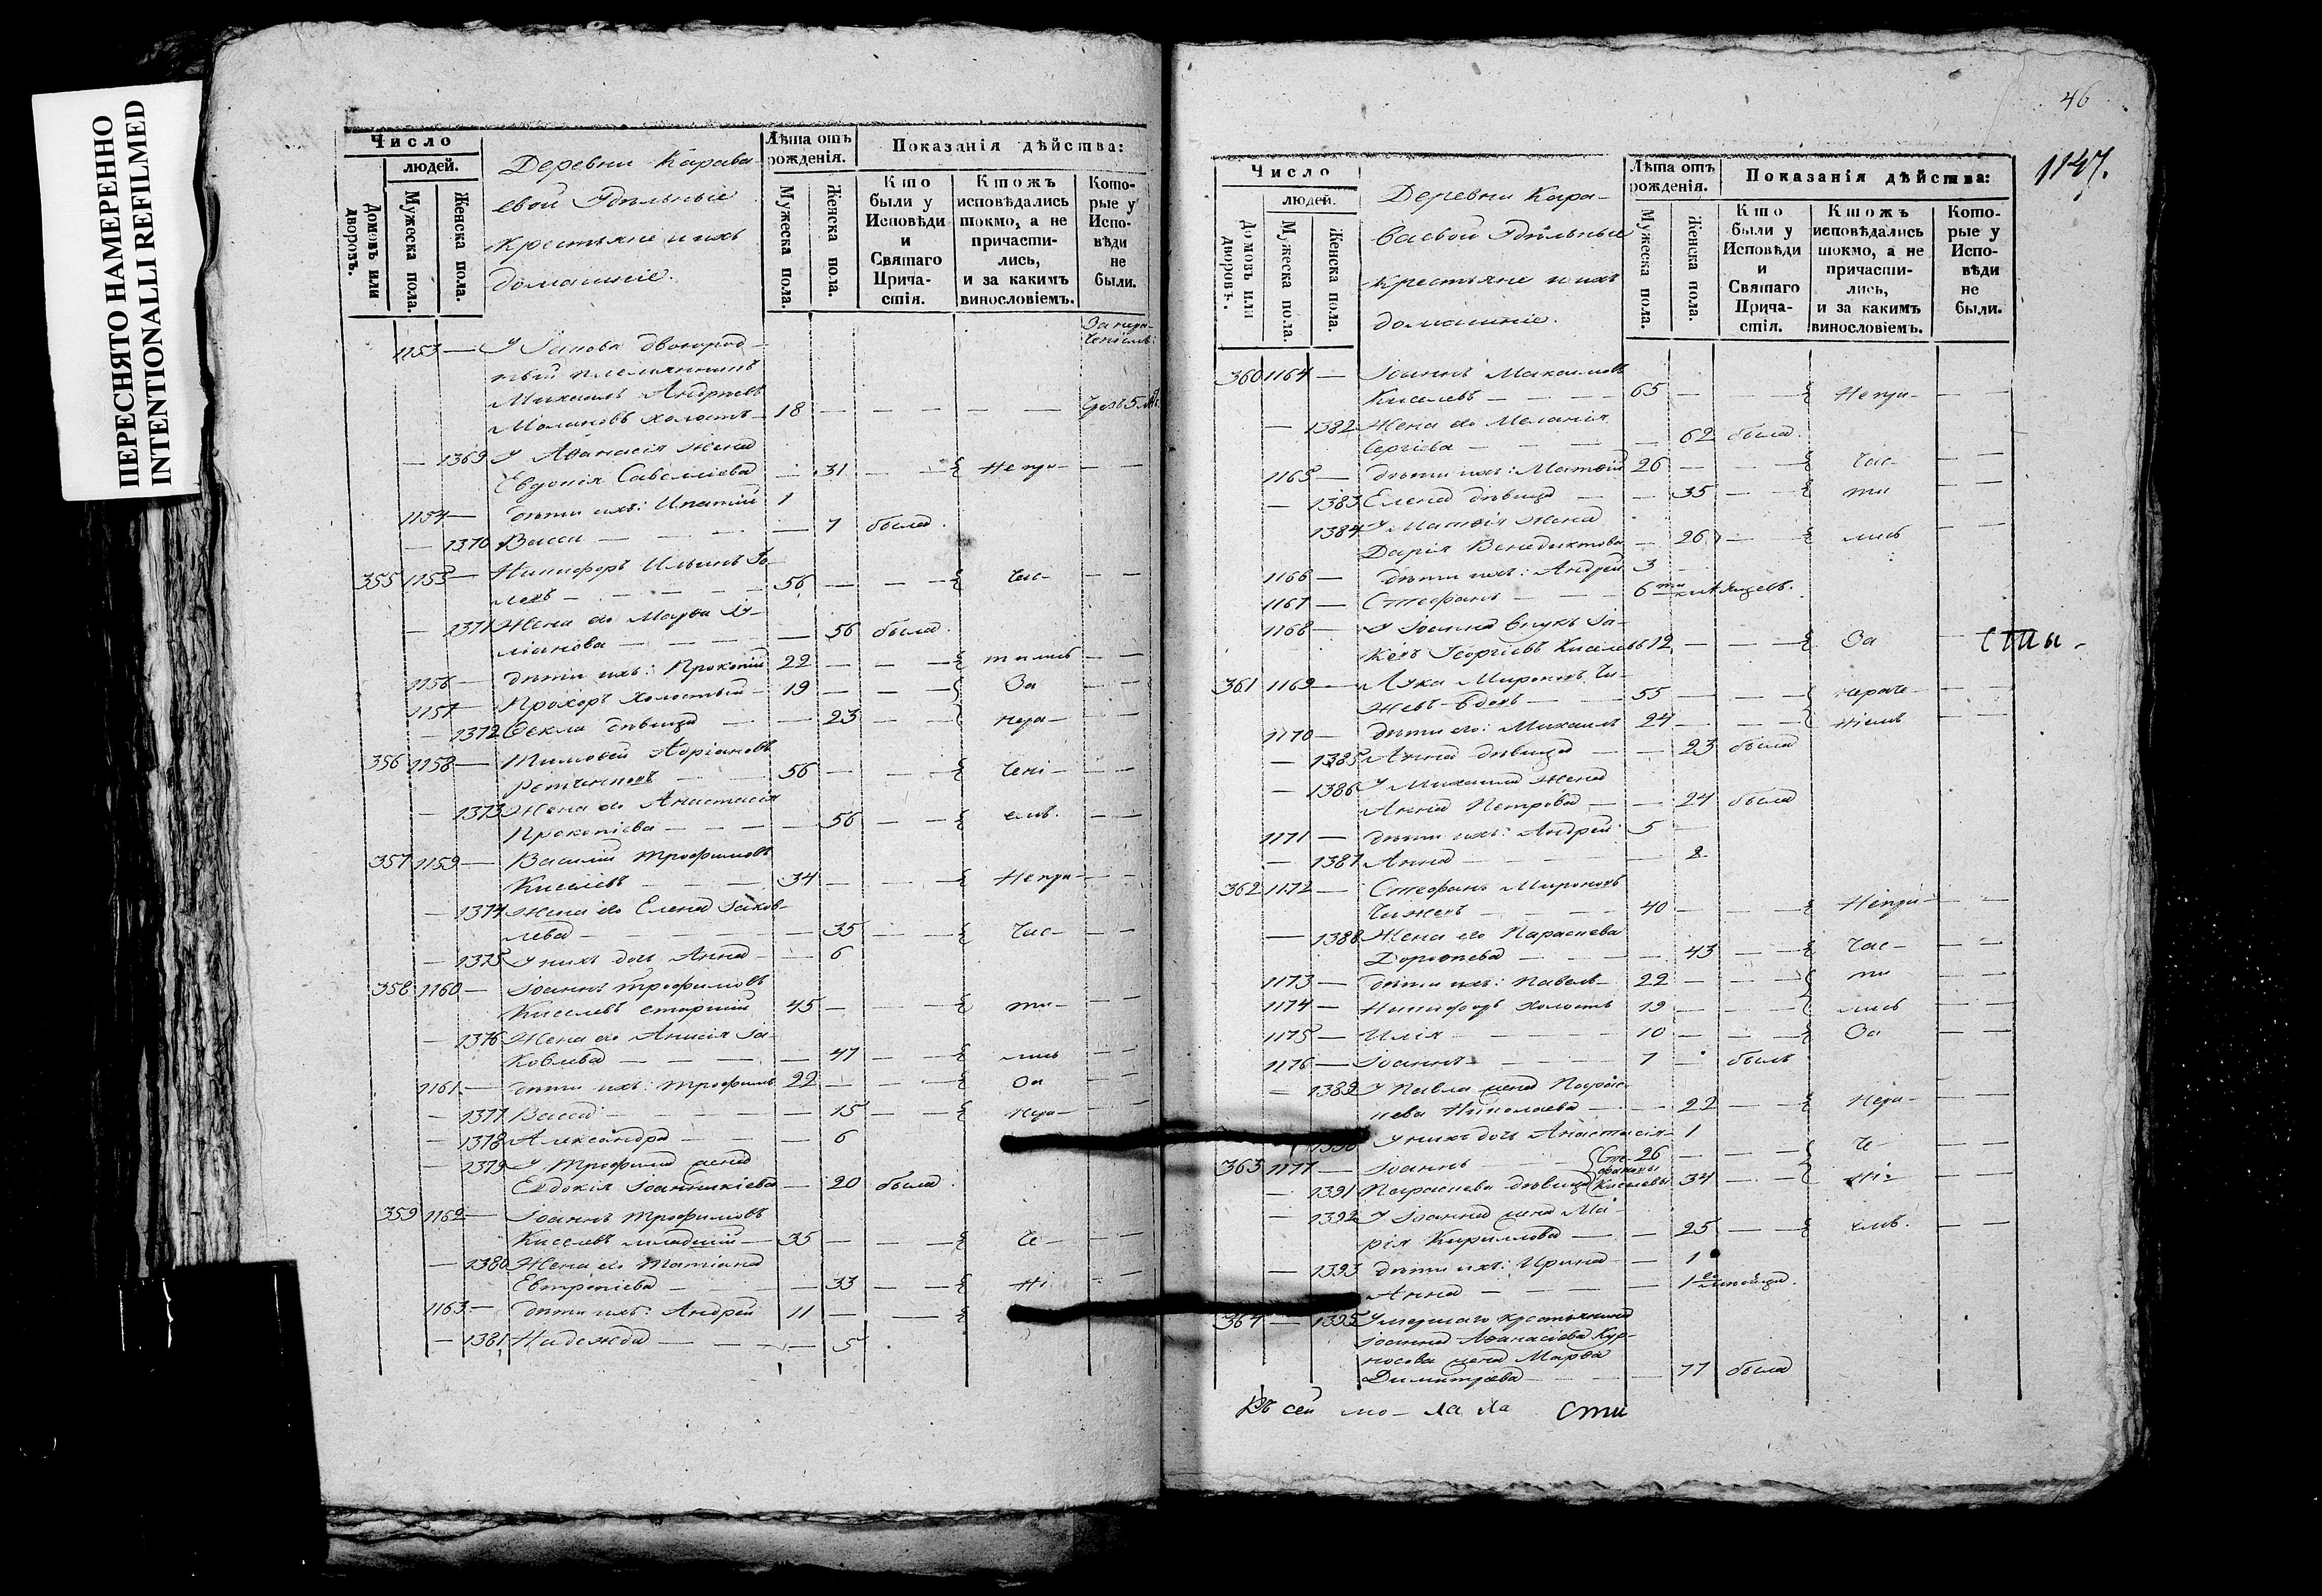 ПЕРЕСНЯТО НАМЕРЕННО
INTENTIONALLI REFILMED
Число
людей.
Домовъ или дворовъ.
Мужеска пола.
Женска пола.
Деревни Карава-
евой Удѣльные
крестьяне и ихъ
домашние.
Лѣта отъ рожденія.
Мужеска пола.
Женска пола.
Показанія дѣйства:
Кто были у Исповѣди и Святаго Прича-стія.
Ктожъ исповѣдались токмо, а не причасти-лись, и за какимъ винословіемъ.
Кото-рые у Испо-вѣди не были.
1153 — У Іакова двоюрод-
ный племянникъ
Михаилъ Андреевъ
холостъ — 18 — — — — —
— 1369 У Аѳанасія жена
Евдокія Савеліева — 31 — — Непри- — —
1154 — дѣти ихъ: Ипатій 1
— 1370 Васса — — 7 была.
355 1155 — Никифоръ Ильинъ
— 56 — — — Час- — —
— 1371 Жена его Марѳа
— 56 была.
1156 — дѣти ихъ: Прокопій 22 — — — тились — —
1157 — Прохоръ холостый — 19 — — — За — —
— 1372 Ѳекла дѣвица — — 23 — — нера- — —
356 1158 — Тимоѳей Адріановъ
— 56 — — — чені- — —
— 1373 Жена его Анастасія
Прокопіева — — — 56 — — емъ. — —
357 1159 — Василій Трофимовъ
Киселевъ — — 34 — — — Непри- — —
— 1374 Жена его Елена Іаков-
лева — — 35 — — Час- — —
— 1375 У нихъ дочь Анна — — 6
358 1160 — Іоаннъ Трофимовъ
Киселевъ старшій 45 — — — ти- — —
— 1376 Жена его Анисія Іа-
ковлева — — — 47 — — лись — —
1161 — дѣти ихъ: Трофимъ 22 — — — За — —
— 1377 Васса — — 15 — — нера- — —
— 1378 Александра — — — 6
— 1379 У Трофима жена
Евдокія Іоанникіева — 20 была.
359 1162 — Іоаннъ Трофимовъ
Киселевъ младшій — 35 — — — че- — —
— 1380 Жена его Татіана
Евтропіева — — 33 — — ні- — —
1163 — дѣти ихъ: Андрей 11 — — —
— 1381 Надежда — — — 5
46
1147.
Число
людей.
Домовъ или дворовъ.
Мужеска пола.
Женска пола.
Деревни Кара-
ваевой Удѣльные
крестьяне и ихъ
домашніе.
Лѣта отъ рожденія.
Мужеска пола.
Женска пола.
Показанія дѣйства:
Кто были у Исповѣди и Святаго Прича-стія.
Ктожъ исповѣдались токмо, а не причасти-лись, и за какимъ винословіемъ.
Кото-рые у Испо-вѣди не были.
360 1164 — Іоаннъ Максимовъ
Киселевъ — — 65 — — — Непри- — —
— 1382 Жена его Меланія
Сергіева — — — 62 была.
1165 — дѣти ихъ: Матѳій 26 — — — Час- — —
— 1383 Елена дѣвица — — 35 — — ти — —
1384 У Матѳія жена
Дарія Венедиктова — 26 — — лись — —
1166 — дѣти ихъ: Андрей 3
1167 — Стефанъ — — 6ти
1168 — У Іоанна внукъ Іа-
ковъ Георгіевъ Киселевъ 12 — — — За —
сты-
361 1169 — Лука Мироновъ Чи-
жевъ вдовъ — 55 — — — нераче- — —
1170 — дѣти его: Михаилъ 24 — — — ніемъ — —
— 1385 Анна дѣвица — — 23 была
— 1386 У Михаила жена
Анна Петрова — — 24 была
1171 — дѣти ихъ: Андрей 5
— 1387 Анна — — 2
362 1172 — Стефанъ Мироновъ
Чижевъ — — 40 — — — Непри- — —
— 1388 Жена его Параскева
Дороѳеева — — 43 — — Час- — —
1173 — дѣти ихъ: Павелъ — 22 — — — ти — —
1174 — Никифоръ холостъ 19 — — — лись — —
1175 — Илія — — 10 — — — За — —
1176 — Іоаннъ — — 7 былъ
— 1389 У Павла жена Парас-
кева Николаева — — 22 — — Нера- — —
1390 У нихъ дочь Анастасія — 1
363 1177 — Іоаннъ — Сте- 26 — — — че- — —
фановы
— 1391 Параскева дѣвица Киселевы 34 — — ні- — —
— 1392 У Іоанна жена Ма-
рія Кириллова — — 25 — — емъ. — —
— 1393 дѣти ихъ: Ирина — 1
Анна — — 1
364 — 1395 Умершаго крестьянина
Іоанна Аѳанасіева Кур-
носова жена Марѳа
Димитріева — — 77 была
Въ сей ла сти